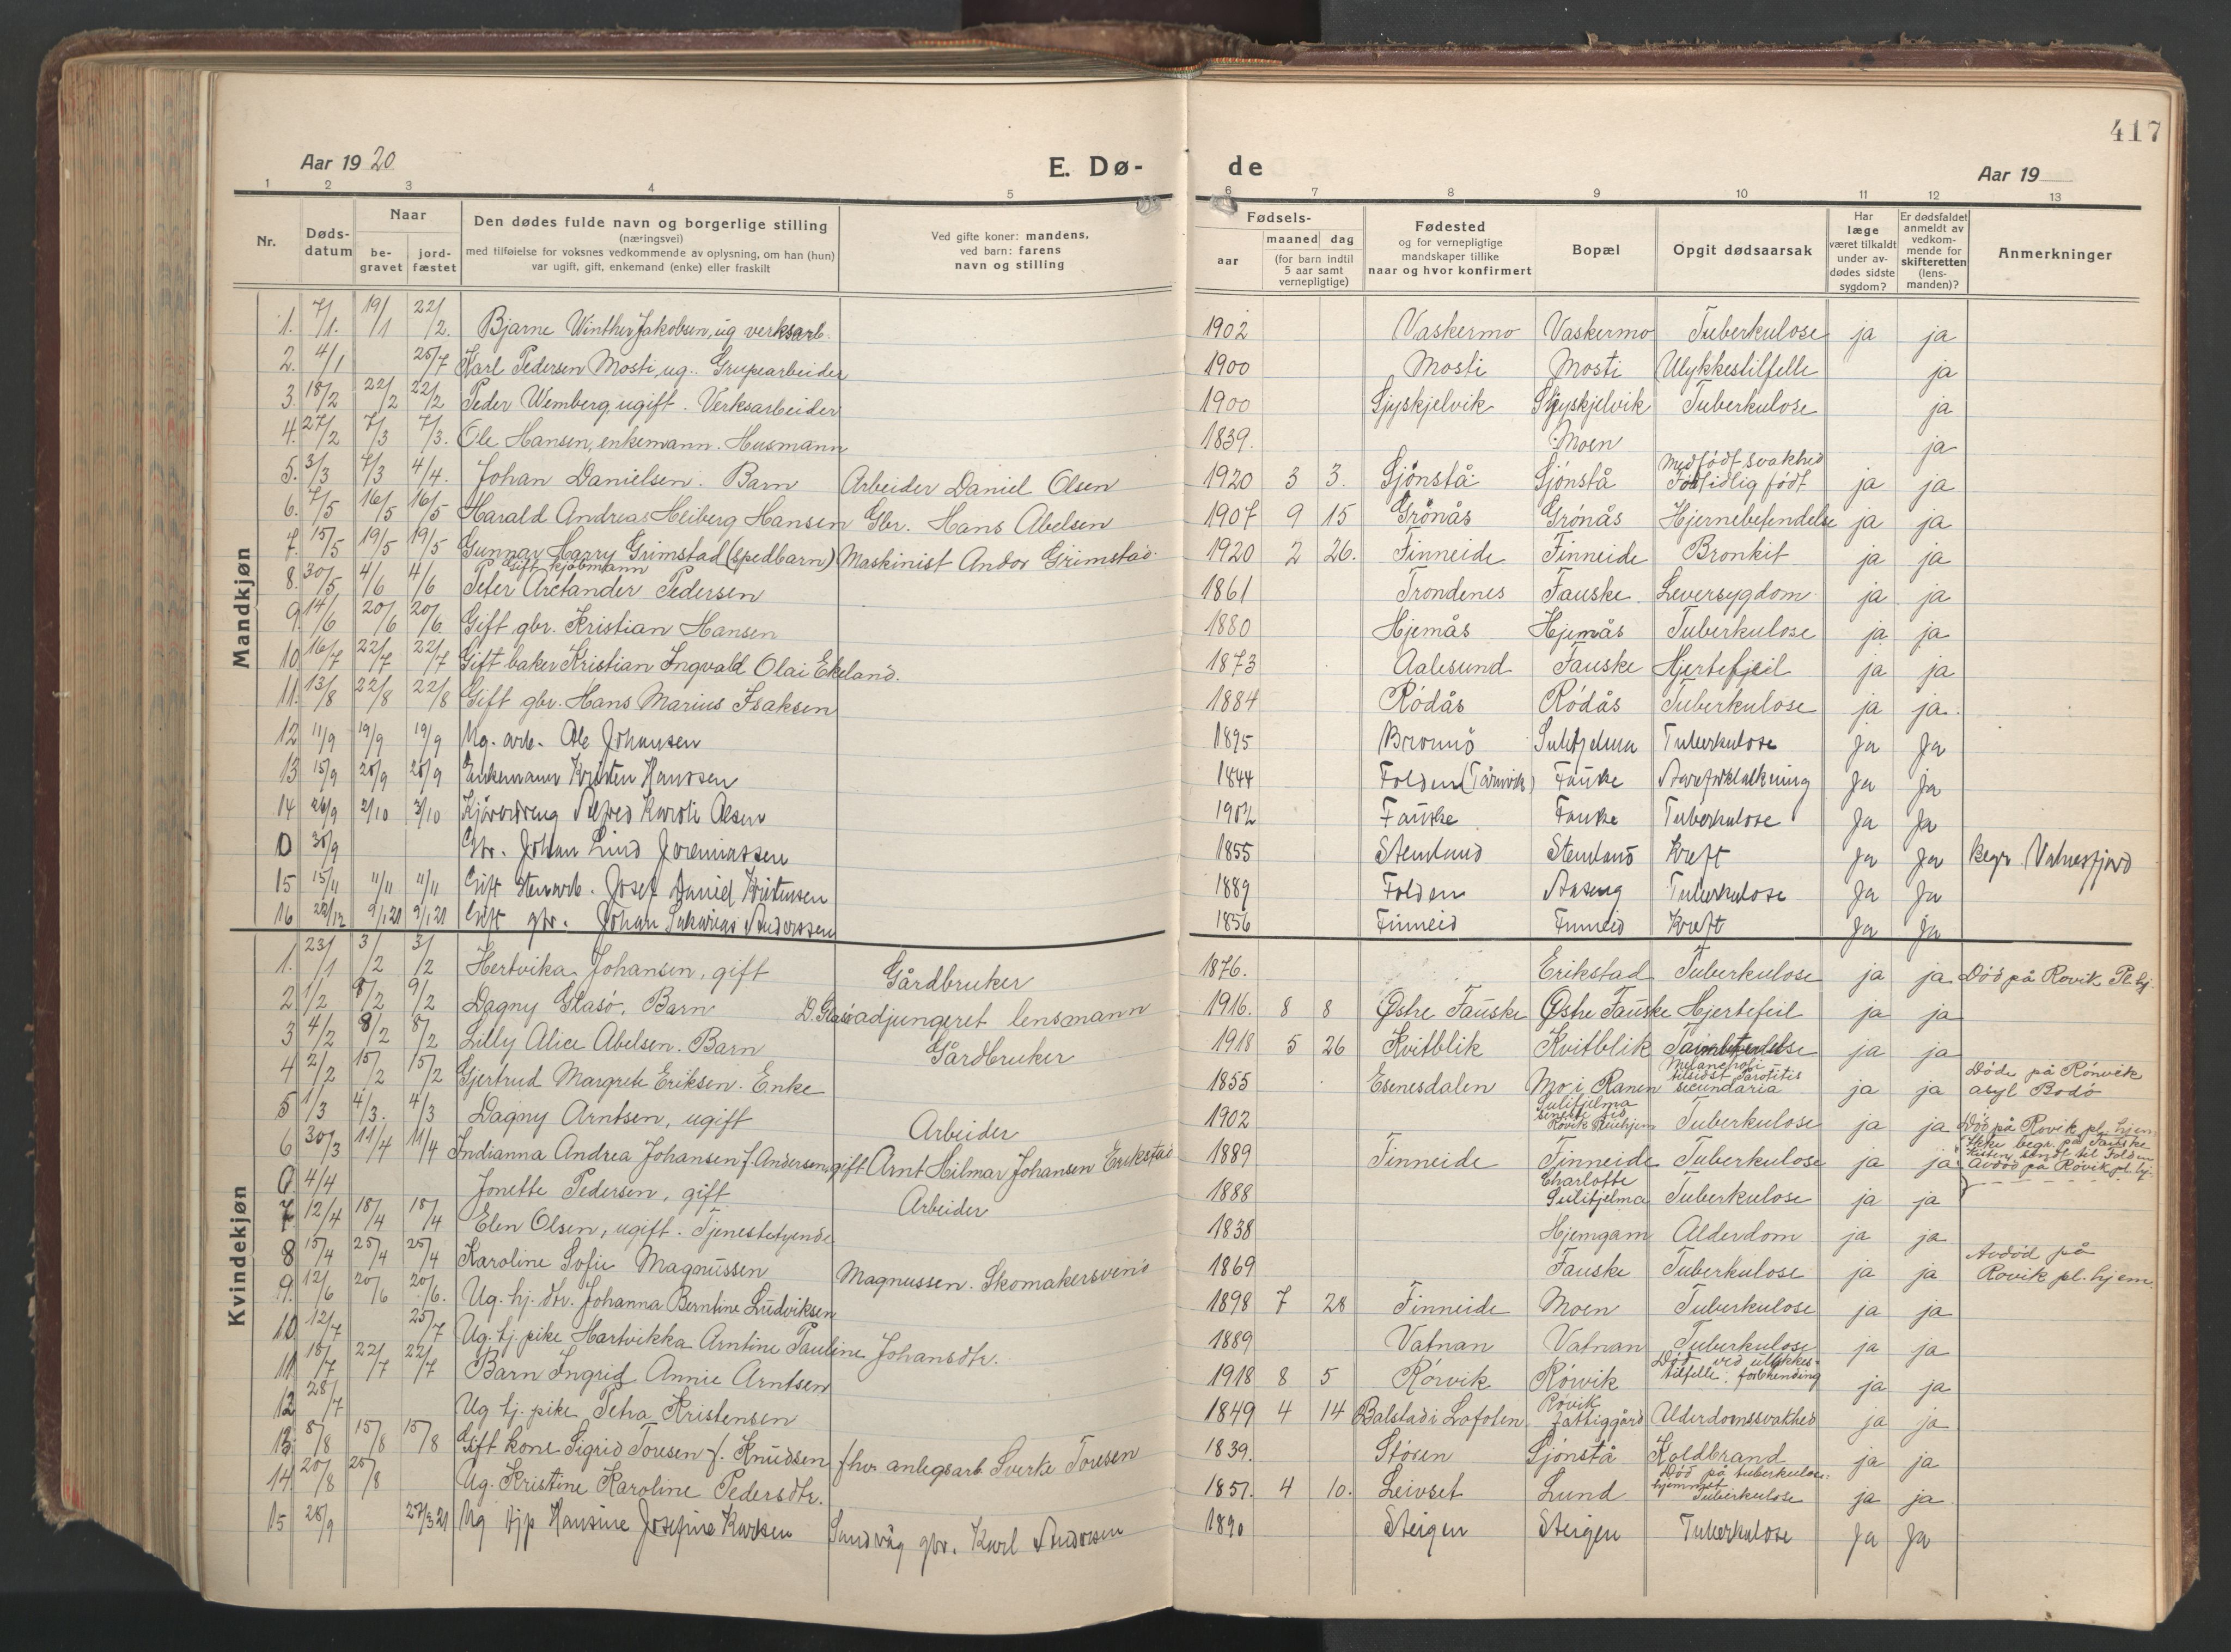 417
Aar 1920 E. Dø- de Aar 19
1 2 3 4 5 6 7 8 9 10 11 12 13
Nr. Døds-datum Naar be-gravet jord-fæstet Den dødes fulde navn og borgerlige stilling (næringsvei) med tilføielse for voksnes vedkommende av oplysning, om han (hun) var ugift, gift, enkemand (enke) eller fraskilt Ved gifte koner: mandens, ved barn: farens navn og stilling Fødsels- aar maaned dag (for barn indtil 5 aar samt vernepligtige) Fødested og for vernepligtige mandskaper tillike naar og hvor konfirmert Bopæl Opgit dødsaarsak Har læge været tilkaldt under av-dødes sidste sygdom? Er dødsfaldet anmeldt av vedkom-mende for skifteretten (lens-manden)? Anmerkninger
Mandkjøn
1. 7/1. 19/1 22/2. Bjarne Winther Jakobsen, ug verksarb. 1902 Vaskermo Vaskermo Tuberkulose ja ja
2. 4/1 25/7 Karl Pedersen Mosti, ug. Grupearbeider 1900 Mosti Mosti Ulykkestilfelle ja
3. 18/2 22/2 22/2 Peder Wemberg ugift. Verksarbeider 1900 Sjyskjelvik Sjyskjelvik Tuberkulose ja
4. 27/2 7/3 7/3. Ole Hansen, enkemann. Husmann 1839. Moen ja
5. 3/3 4/4. Johan Danielsen. Barn Arbeider Daniel Olsen 1920 3 3. Sjönstå Sjönstå Medfødt svakhed Fortidlig født ja ja
6. 7/5 16/5 16/5 Harald Andreas Heiberg Hansen Gbr. Hans Abelsen 1907 9 15 Grönås Grönås Hjernebetendelse ja ja
7. 15/5 19/5 19/5 Gunnar Harry Grimstad (spedbarn) Maskinist Andor Grimstad. 1920 2 26. Finneide Finneide Bronkit ja ja
8. 30/5 4/6 4/6 Gift kjöbmann Peter Arctander Pedersen 1861 Trondenes Fauske Leversygdom ja ja
9 14/6 20/6 20/6 Gift gbr. Kristian Hansen 1880 Hjemås Hjemås Tuberkulose ja ja
10 16/7 22/7 22/7 Gift baker Kristian Ingvald Olai Ekeland. 1873 Aalesund Fauske Hjertefeil ja ja
11. 13/8 22/8 22/8 Gift gbr. Hans Marius Isaksen 1884 Rödås Rödås Tuberkulose ja ja.
12 11/9 19/9 19/9 Ug. arb. Ole Johansen 1895 Bronnö Sulitjelma Tuberkulose Ja Ja
13 15/9 26/9 26/9 Enkemann Kristen Hanssen 1844 Folden (Tårnvik) Fauske Aareforkalkning Ja Ja
14 26/9 3/10 Alfred Karoli Olsen 1902 Fauske Fauske Tuberkulose Ja Ja
0 30/9 Gbr. Johan Lind Jeremiassen 1855 Stemland Stemland Kreft Ja Ja begr. Valnesfjord
15 11/11 11/11 Gift stenarb. Josef Daniel Kristensen 1889 Folden Aaseng Tuberkulose Ja Ja
16 9/1 21 9/1 21 Gift gbr. Johan Sakarias Anderssen 1856 Finneid Finneid Kreft Ja Ja
Kvindekjøn
1. 23/1 3/2 3/2 Hertvika Johansen, gift Gårdbruker 1876. Erikstad Tuberkulose ja ja Död på Rovik Pl. hj.
2 1/2 8/2 9/2 Dagny Glasö, Barn D. Glasö adjungeret lensmann 1916. 8 8 Østre Fauske Østre Fauske Hjertefeil ja ja
3 4/2 8/2 8/2 Lilly Alice Abelsen. Barn Gårdbruker 1918 5 26 Kvitblik Kvitblik ja ja
4 2/2 15/2 15/2 Gjertrud Margrete Eriksen. Enke 1855 Esenesdalen Mo i Ranen Melancholi tilsidst Parotitis secundaria ja ja Döde på Rönvik asyl Bodö
5 1/3 4/3. 4/3 Dagny Arntsen, ugift Arbeider 1902 Sulitjelma seneste tid Rövik Tuberkulose ja ja Död på Rovik pl. hjem
6 30/3 11/4 11/4 Indianna Andrea Johansen f. Andersen, gift Arnt Hilmar Johansen Erikstad 1889 Finneide Finneide Tuberkulose ja ja Ikke begr. på Fauske Kisten sendt til Folden Avdöd på Rövik pl. hj.
0 4/4 Jonette Pedersen, gift Arbeider 1888 Charlotte Sulitjelma Tuberkulose ja ja
7. 12/4 18/4 18/4 Elen Olsen, ugift. Tjenestetyende 1838 Hjemgam Alderdom ja ja
8 15/4 25/4 25/4 Karoline Sofie Magnussen Magnussen. Skomakersvend 1869 Fauske Tuberkulose ja ja Avdöd på Rovik pl. hjem.
9. 12/6 20/6 20/6. Ug. hj. dtr. Johanna Berntine Ludviksen 1898 7 28 Finneide Moen Tuberkulose ja ja
10 12/7 25/7 Ug. tj. pike Hartvikka Arntine Pauline Johansdtr. 1889 Vatnan Vatnan Tuberkulose ja ja
11 18/7 22/7 22/7 Barn Ingrid Annie Arntsen 1918 8 5 Rörvik Rörvik Död ved ulykkes-tilfelle. forbrending ja ja
12 28/7 Ug tj. pike Petra Kristensen 1849 4 14 Balstad i Lofoten Rövik fattiggård Alderdomssvakhed ja ja
13. 8/8 15/8 15/8 Gift kone Sigrid Toresen f. Knudsen fhv. anlegsarb. Sverke Toresen 1839. Stören Sjönstå Koldbrand ja ja
14. 20/8 25/8 Ug. Kristine Karoline Pedersdtr. 1857. 4 10. Leivset Lund Död på tuberkulose-hjemmet Tuberkulose ja ja
15 28/9 27/3 21 Ug tjp Hansine Josefine Karlsen Sandvåg gbr. Karl Andersen 1890 Steigen Steigen Tuberkulose Ja Ja